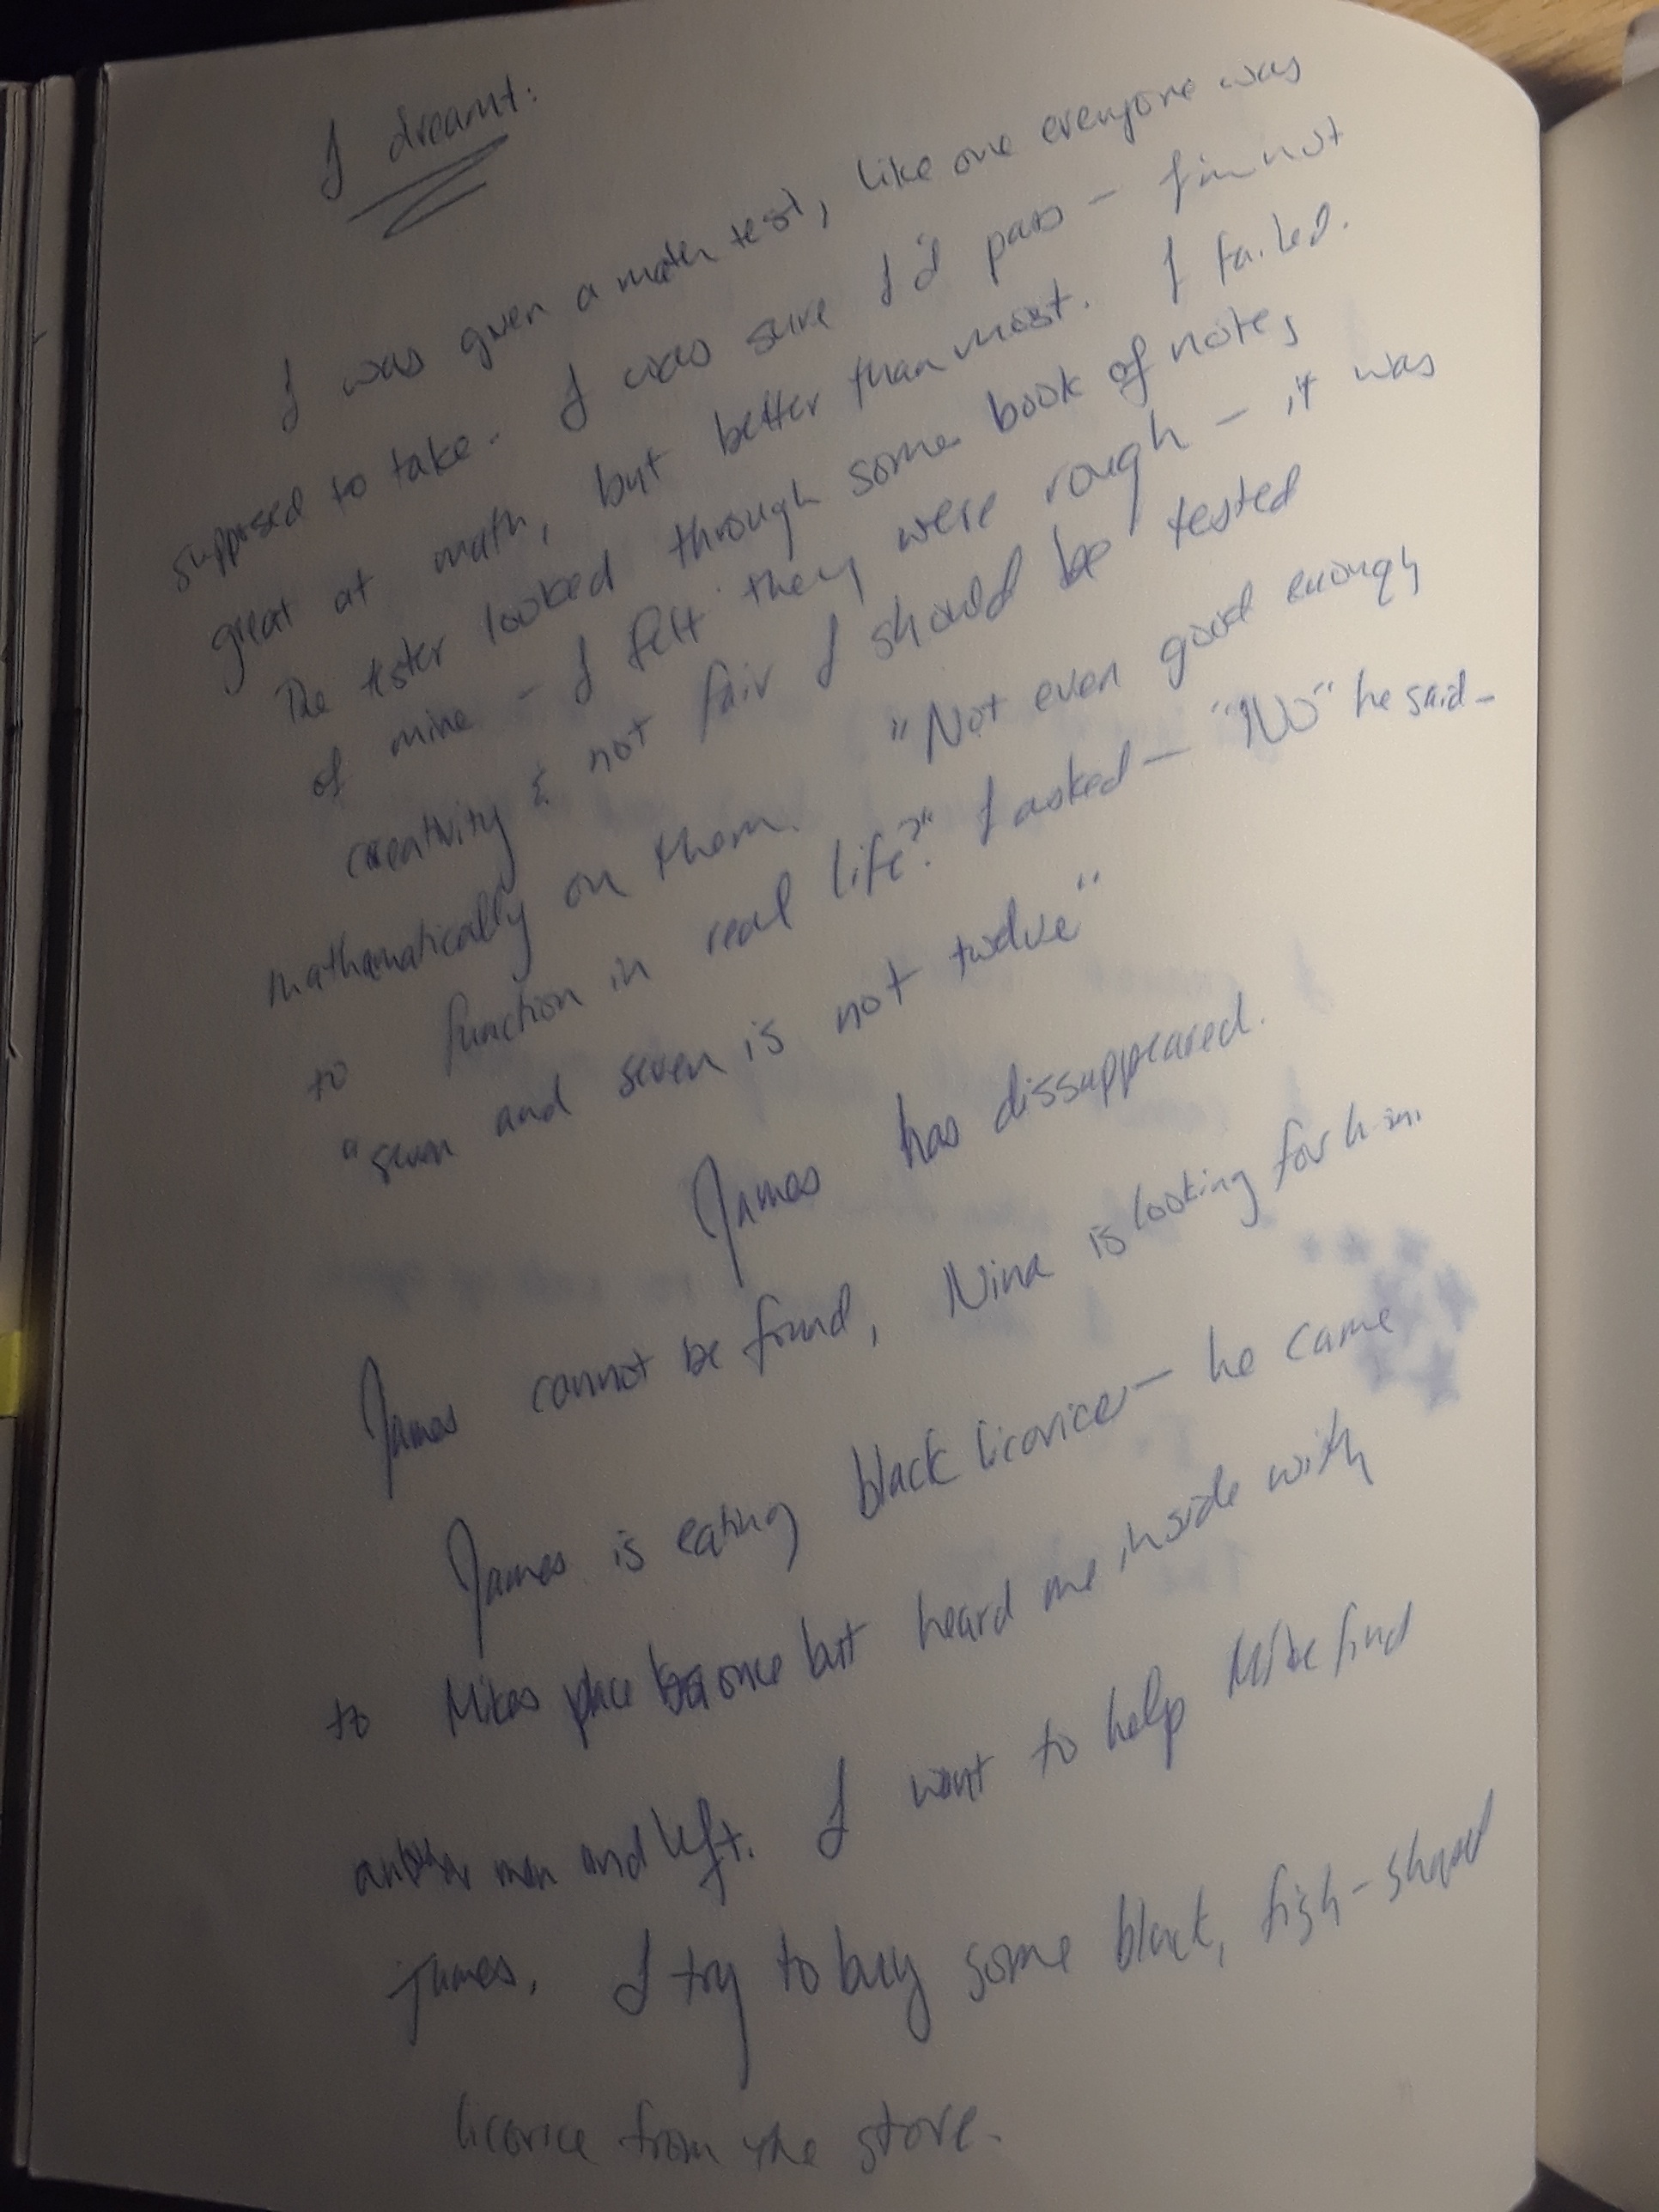 I dreamt:
I was given a math test, like one everyone was
supposed to take. I was sure I'd pass - I'm not
great at math, but better than most. I failed.
The tester looked through some book of notes
of mine - I felt they were rough - it was
creativity & not fair I should be tested
mathematically on them. "Not even good enough
to function in real life?" I asked - "NO" he said -
"seven and seven is not twelve"
James has dissuppeared.
James cannot be found, Nina is looking for him.
James is eating black licorice - he came
to Mikes place once but heard me inside with
another man and left. I want to help Mike find
James. I try to buy some black, fish-shaped
licorice from the store.